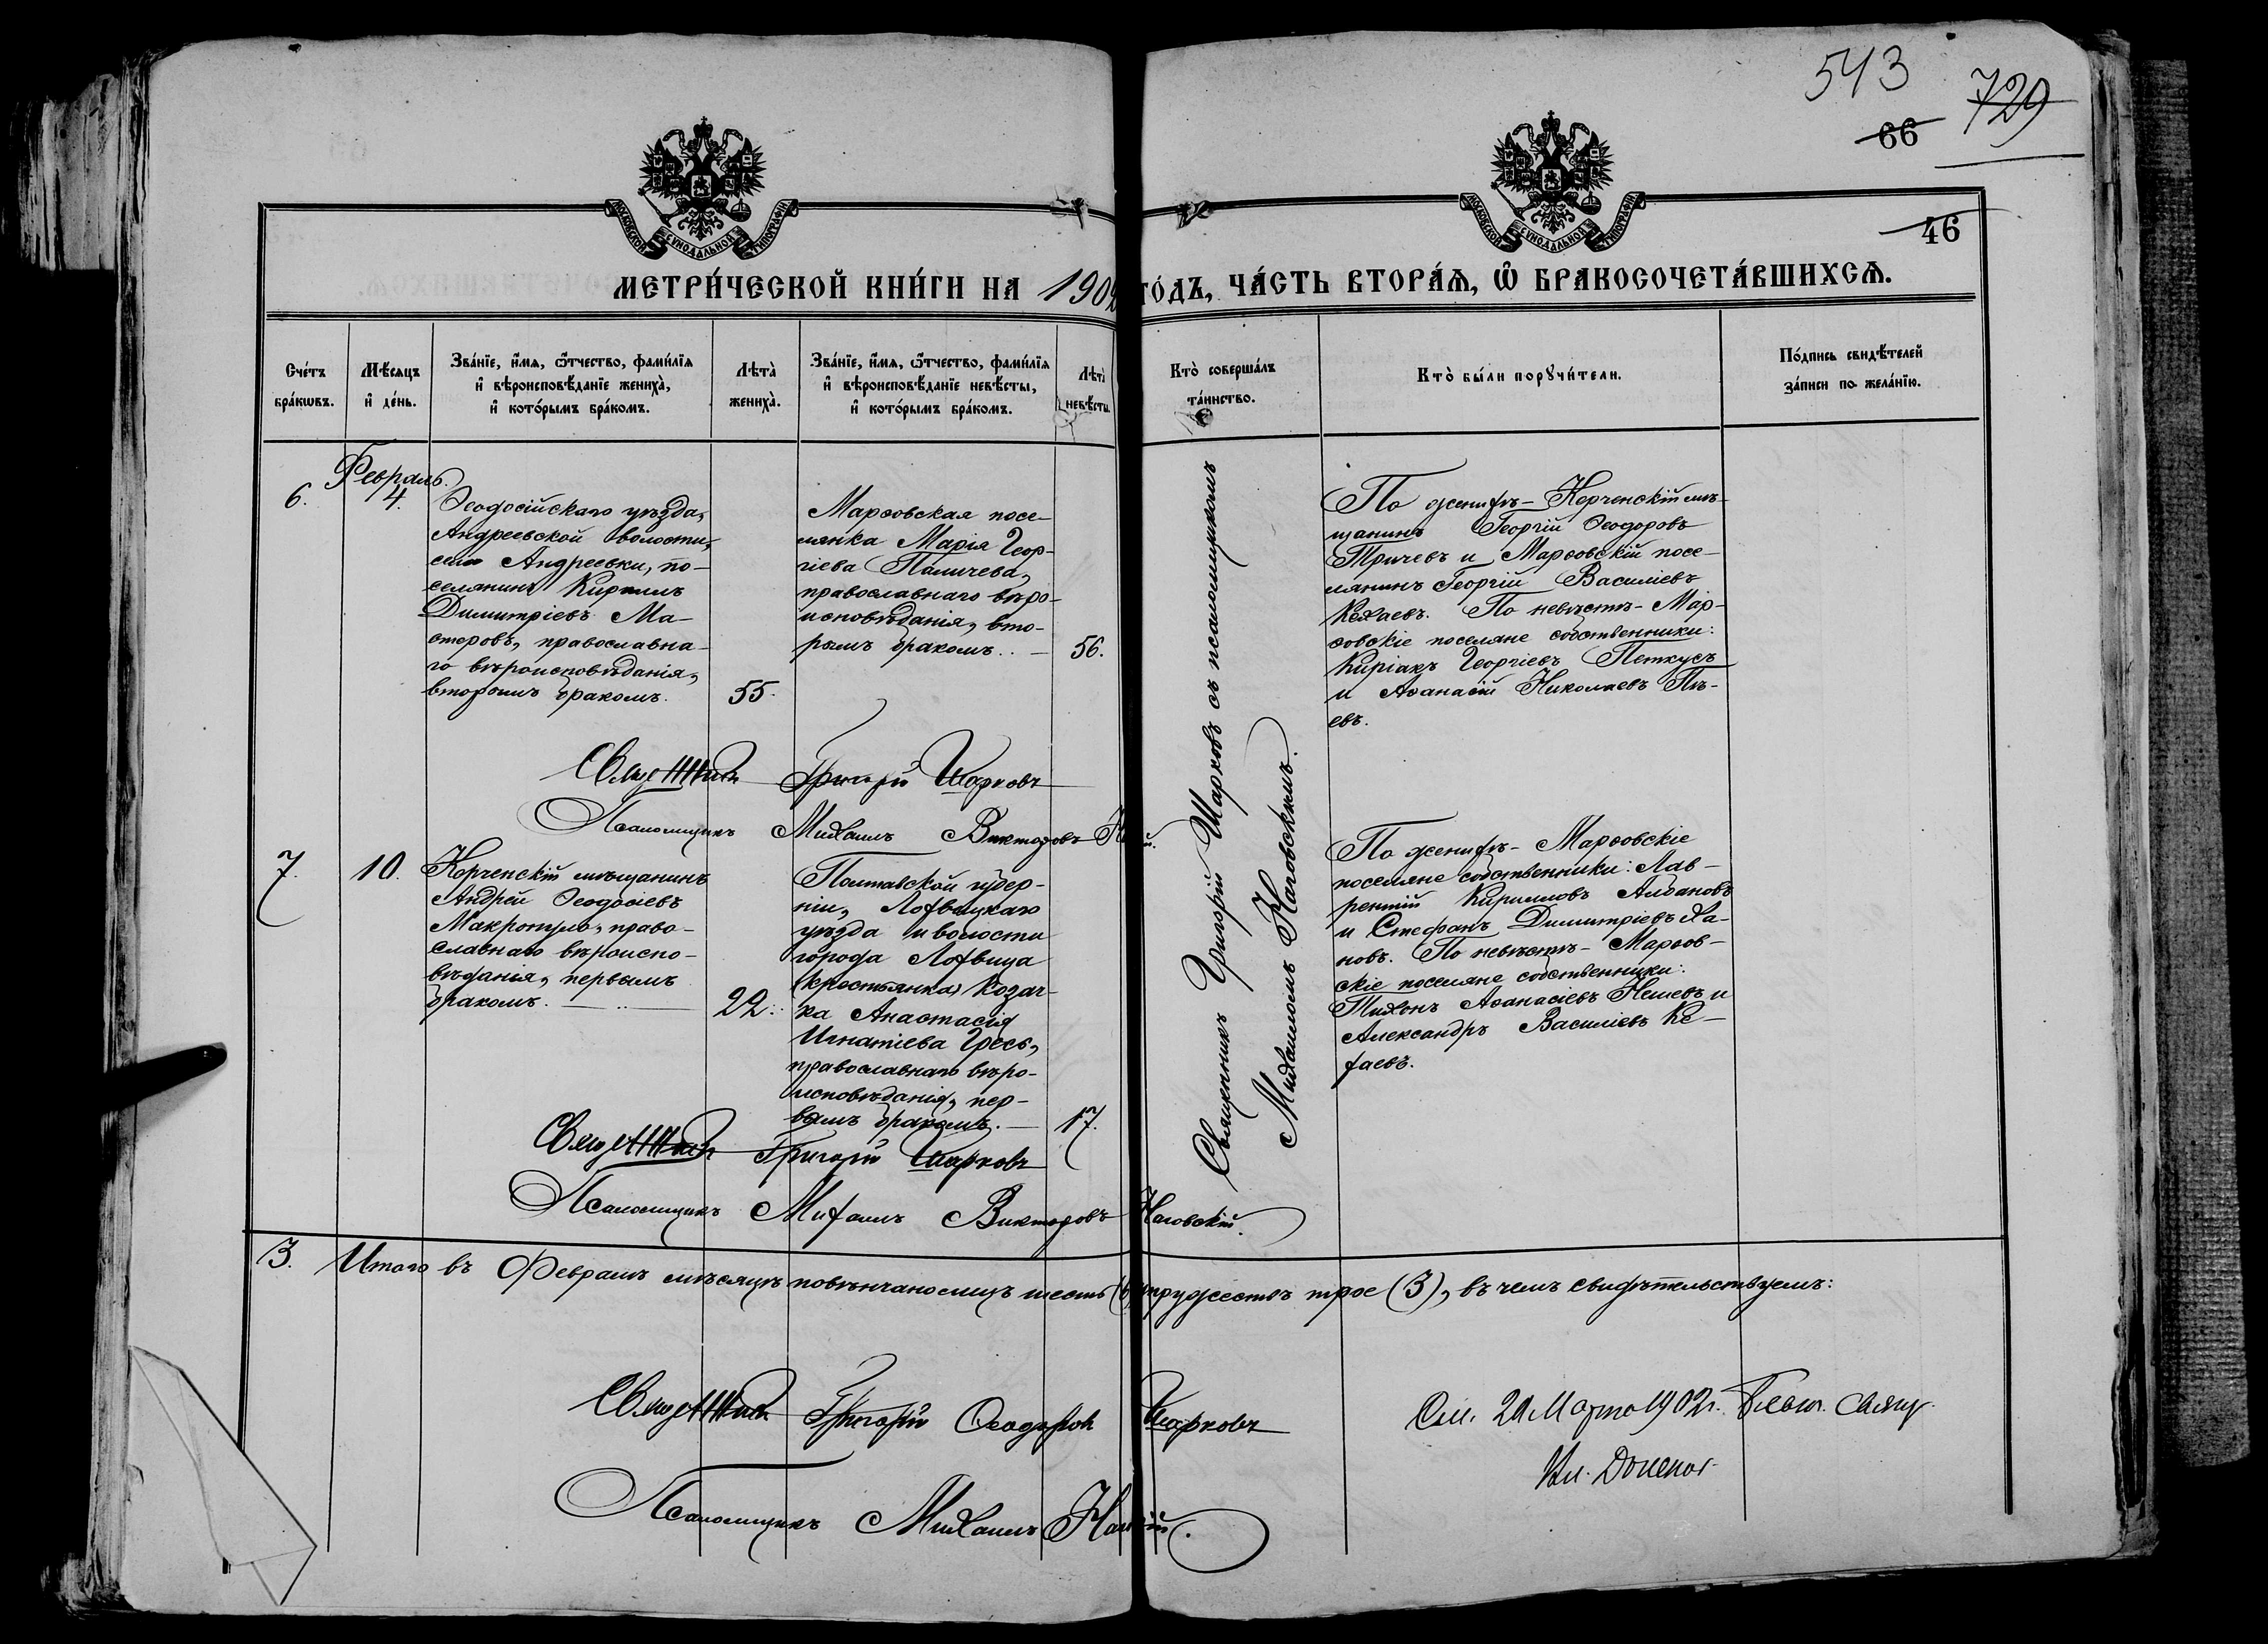 543
729
66
МОСКОВСКОЙ СУНОДАЛЬНОЙ ТИПОГРАФІИ
МОСКОВСКОЙ СУНОДАЛЬНОЙ ТИПОГРАФІИ
46
МЕТРИ́ЧЕСКОЙ КНИ́ГИ НА 190
ГО́ДЪ, ЧА́СТЬ ВТОРА́Ѧ, Ѽ БРАКОСОЧЕТА́ВШИХСѦ.
Сче́тъ
бра́кѡвъ.
Мѣ́сяцъ
и҆ де́нь.
Зва́нїе, и҆́мя, ѻ҆́тчество, фами́лїя
и҆ вѣроисповѣ́данїе жениха̀,
и҆ кото́рымъ бра́комъ.
Лѣта̀
жениха̀.
Зва́нїе, и҆́мя, ѻ҆́тчество, фами́лїя
и҆ вѣроисповѣ́данїе невѣ́сты,
и҆ кото́рымъ бра́комъ.
Лѣта̀
невѣ́сты.
Кто̀ соверша́лъ
та́инство.
Кто̀ бы́ли порꙋчи́тели.
По́дпись свидѣ́телей
за́писи по жела́нїю.
Февраль.
6.
4.
Ѳеодосійскаго уѣзда,
Андреевской волости,
села Андреевки, по-
селянинъ Кириллъ
Димитріевъ Ма-
стеровъ, православна-
го вѣроисповѣданія,
вторымъ бракомъ.
55.
Марѳовская посе-
лянка Марія Геор-
гіева Паничева,
православнаго вѣро-
исповѣданія, вто-
рымъ бракомъ..
56.
Священникъ Григорій Шарковъ съ псаломщикомъ
Михаиломъ Наговскимъ.
По женихѣ - Керченскій мѣ-
щанинъ Георгій Ѳеодоровъ
Тричевъ и Марѳовскій посе-
лянинъ Георгій Василіевъ
Кехаевъ. По невѣстѣ - Мар-
ѳовскіе поселяне собственники:
Киріакъ Георгіевъ Петкусъ
и Аѳанасій Николаевъ
евъ.
Священникъ Григорій Шарковъ
Псаломщикъ Михаилъ Викторовъ
7.
10.
Керченскій мѣщанинъ
Андрей Ѳеодосіевъ
Макропуло, право-
славнаго вѣроиспо-
вѣданія, первымъ
бракомъ.
22.
Полтавской губер-
ніи, Лохвицкаго
уѣзда и волости
города Лохвица
(крестьянка) Козач-
ка Анастасія
Игнатіева Гресь,
православнаго вѣро-
исповѣданія, пер-
вымъ бракомъ.
17.
По женихѣ - Марѳовскіе
поселяне собственники: Лав-
рентій Кирилловъ Алдановъ
и Стефанъ Димитріевъ Ха-
новъ. По невѣстѣ - Марѳов-
скіе поселяне собственники:
Тихонъ Аѳанасіевъ Нешевъ и
Александръ Василіевъ Ке-
хаевъ.
Священникъ Григорій Шарковъ
Псаломщикъ Михаилъ Викторовъ Наговскій.
3.
Итого въ Февралѣ мѣсяцѣ повѣнчано лицъ шесть супружествъ трое (3), въ чемъ свидѣтельствуемъ:
Священникъ Григорій Ѳеодоров Шарковъ
Псаломщикъ Михаилъ
1902г.